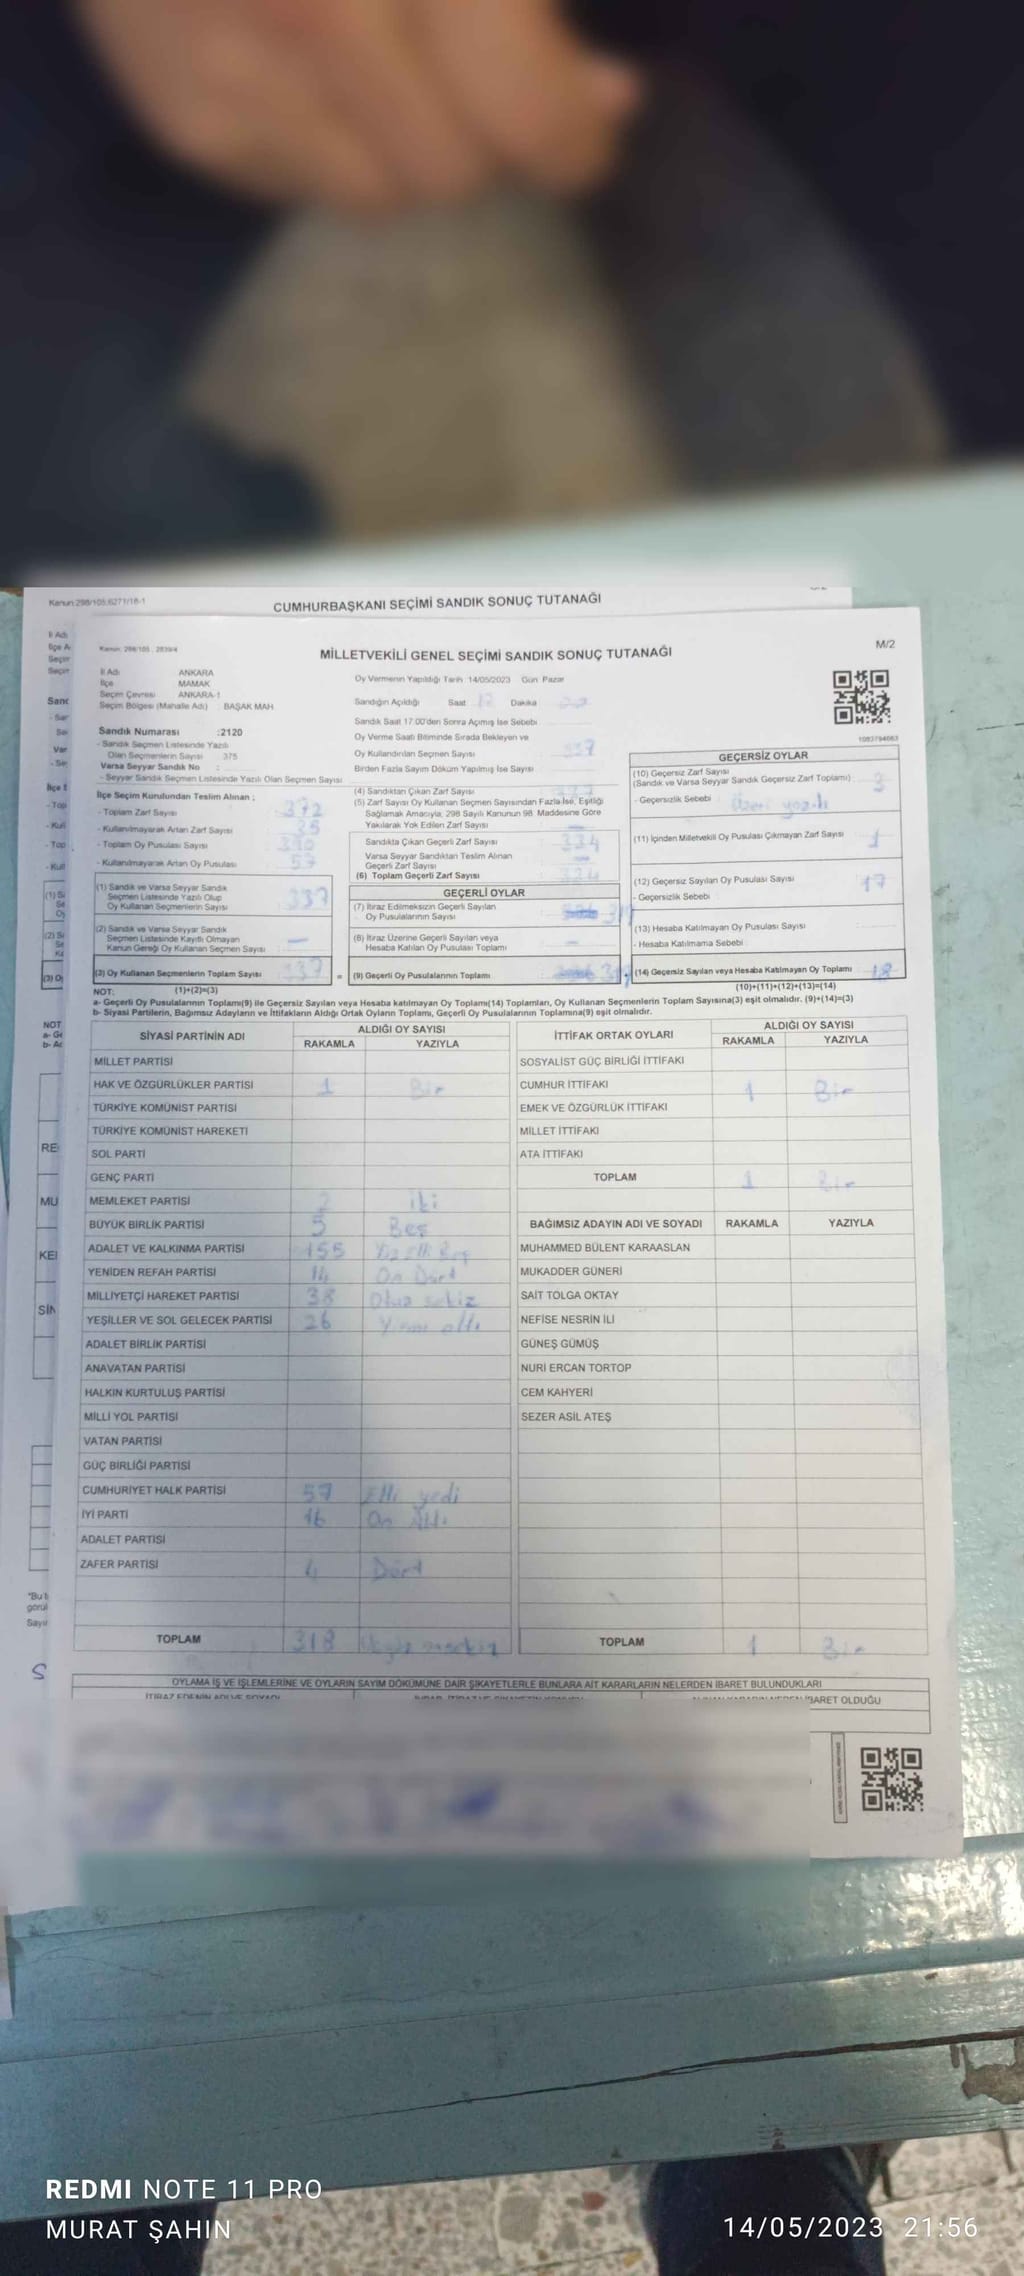 Kanun:298/105,6271/18-1
CUMHURBAŞKANI SEÇİMİ SANDIK SONUÇ TUTANAĞI
Kanun: 298/105 , 2839/4
MİLLETVEKİLİ GENEL SEÇİMİ SANDIK SONUÇ TUTANAĞI
M/2
İl Adı : ANKARA
İlçe MAMAK
Seçim Çevresi ANKARA-1
Seçim Bölgesi (Mahalle Adı) : BAŞAK MAH.
Sandık Numarası :2120
- Sandık Seçmen Listesinde Yazılı
Olan Seçmenlerin Sayısı 375
Varsa Seyyar Sandık No :
- Seyyar Sandık Seçmen Listesinde Yazılı Olan Seçmen Sayısı
İlçe Seçim Kurulundan Teslim Alınan ;
- Toplam Zarf Sayısı 372
- Kullanılmayarak Artan Zarf Sayısı 35
- Toplam Oy Pusulası Sayısı
- Kullanılmayarak Artan Oy Pusulası 53
(1) Sandık ve Varsa Seyyar Sandık
Seçmen Listesinde Yazılı Olup
Oy Kullanan Seçmenlerin Sayısı 337
(2) Sandık ve Varsa Seyyar Sandık
Seçmen Listesinde Kayıtlı Olmayan
Kanun Gereği Oy Kullanan Seçmen Sayısı —
(3) Oy Kullanan Seçmenlerin Toplam Sayısı 337
Oy Vermenin Yapıldığı Tarih 14/05/2023 Gün Pazar
Sandığın Açıldığı Saat Dakika
Sandık Saat 17:00'den Sonra Açımış İse Sebebi
Oy Verme Saati Bitiminde Sırada Bekleyen ve
Oy Kullandırılan Seçmen Sayısı 337
Birden Fazla Sayım Döküm Yapılmış İse Sayısı
(4) Sandıktan Çıkan Zarf Sayısı 337
(5) Zarf Sayısı Oy Kullanan Seçmen Sayısından Fazla İse, Eşitliği
Sağlamak Amacıyla, 298 Sayılı Kanunun 98. Maddesine Göre
Yakılarak Yok Edilen Zarf Sayısı —
Sandıkta Çıkan Geçerli Zarf Sayısı 334
Varsa Seyyar Sandıktan Teslim Alınan
Geçerli Zarf Sayısı —
(6) Toplam Geçerli Zarf Sayısı
GEÇERLİ OYLAR
(7) İtiraz Edilmeksizin Geçerli Sayılan
Oy Pusulalarının Sayısı
(8) İtiraz Üzerine Geçerli Sayılan veya
Hesaba Katılan Oy Pusulası Toplamı —
= (9) Geçerli Oy Pusulalarının Toplamı
1083794663
GEÇERSİZ OYLAR
(10) Geçersiz Zarf Sayısı
(Sandık ve Varsa Seyyar Sandık Geçersiz Zarf Toplamı) 3
- Geçersizlik Sebebi Üzeri yazılı
(11) İçinden Milletvekili Oy Pusulası Çıkmayan Zarf Sayısı 1
(12) Geçersiz Sayılan Oy Pusulası Sayısı 17
- Geçersizlik Sebebi
(13) Hesaba Katılmayan Oy Pusulası Sayısı
- Hesaba Katılmama Sebebi
(14) Geçersiz Sayılan veya Hesaba Katılmayan Oy Toplamı 18
NOT: (1)+(2)=(3) (10)+(11)+(12)+(13)=(14)
a- Geçerli Oy Pusulalarının Toplamı(9) ile Geçersiz Sayılan veya Hesaba katılmayan Oy Toplamı(14) Toplamları, Oy Kullanan Seçmenlerin Toplam Sayısına(3) eşit olmalıdır. (9)+(14)=(3)
b- Siyasi Partilerin, Bağımsız Adayların ve İttifakların Aldığı Ortak Oyların Toplamı, Geçerli Oy Pusulalarının Toplamına(9) eşit olmalıdır.
SİYASİ PARTİNİN ADI ALDIĞI OY SAYISI
RAKAMLA YAZIYLA
MİLLET PARTİSİ
HAK VE ÖZGÜRLÜKLER PARTİSİ 1 Bir
TÜRKİYE KOMÜNİST PARTİSİ
TÜRKİYE KOMÜNİST HAREKETİ
SOL PARTİ
GENÇ PARTİ
MEMLEKET PARTİSİ 2 İki
BÜYÜK BİRLİK PARTİSİ 5 Beş
ADALET VE KALKINMA PARTİSİ 155 Yüz Elli Beş
YENİDEN REFAH PARTİSİ 14 On Dört
MİLLİYETÇİ HAREKET PARTİSİ 38 Otuz sekiz
YEŞİLLER VE SOL GELECEK PARTİSİ 26 Yirmi altı
ADALET BİRLİK PARTİSİ
ANAVATAN PARTİSİ
HALKIN KURTULUŞ PARTİSİ
MİLLİ YOL PARTİSİ
VATAN PARTİSİ
GÜÇ BİRLİĞİ PARTİSİ
CUMHURİYET HALK PARTİSİ 57 Elli yedi
İYİ PARTİ 16 On Altı
ADALET PARTİSİ
ZAFER PARTİSİ 4 Dört
TOPLAM 318
İTTİFAK ORTAK OYLARI ALDIĞI OY SAYISI
RAKAMLA YAZIYLA
SOSYALİST GÜÇ BİRLİĞİ İTTİFAKI
CUMHUR İTTİFAKI 1 Bir
EMEK VE ÖZGÜRLÜK İTTİFAKI
MİLLET İTTİFAKI
ATA İTTİFAKI
TOPLAM 1 Bir
BAĞIMSIZ ADAYIN ADI VE SOYADI RAKAMLA YAZIYLA
MUHAMMED BÜLENT KARAASLAN
MUKADDER GÜNERİ
SAİT TOLGA OKTAY
NEFİSE NESRİN İLİ
GÜNEŞ GÜMÜŞ
NURİ ERCAN TORTOP
CEM KAHYERİ
SEZER ASİL ATEŞ
TOPLAM 1 Bir
OYLAMA İŞ VE İŞLEMLERİNE VE OYLARIN SAYIM DÖKÜMÜNE DAİR ŞİKAYETLERLE BUNLARA AİT KARARLARIN NELERDEN İBARET BULUNDUKLARI
REDMI NOTE 11 PRO
MURAT ŞAHIN
14/05/2023 21:56